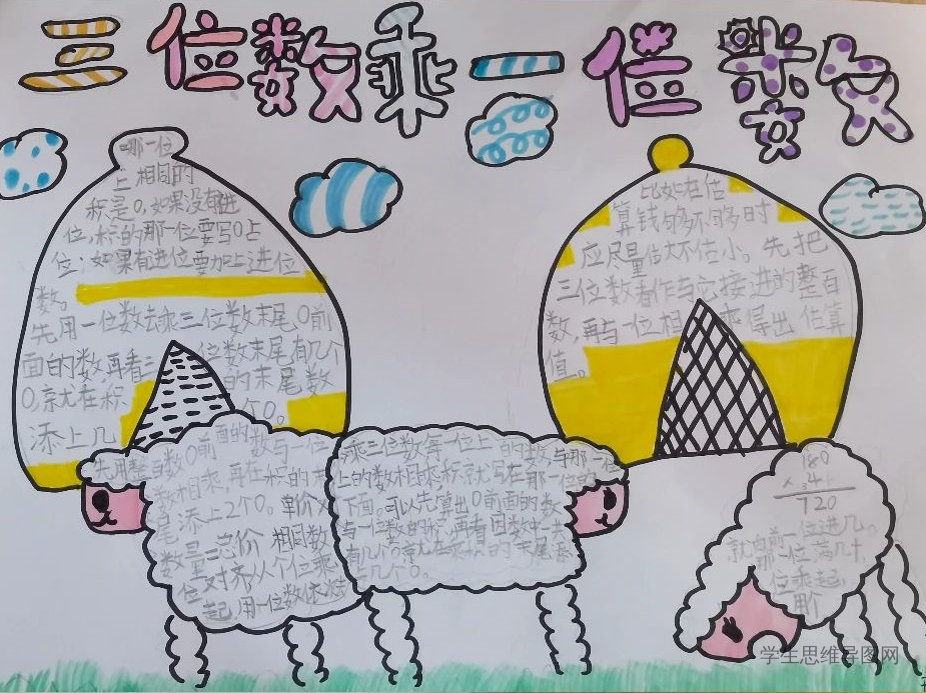 三位数乘一位数
哪一位
上相同的
积是0,如果没有进
位,积的那一位要写0占
位;如果有进位要加上进位
数。
先用一位数去乘三位数末尾0前
面的数,再看三位数末尾有几个
0,就在积的末尾数
添上几个0。
比如在估
算钱够不够时
应尽量估大不估小。先把
三位数看作与它接进的整百
数,再与一位相乘得出估算
值。
先用整百数0前面的数与一位
数相乘,再在积的末
尾添上2个0。单价×
数量=总价 相同数
位对齐从个位乘
起,用一位数依次
乘三位数每一位上的数,与哪一位
上的数相乘积就写在那一位的
下面。可以先算出0前面的数
与一位数的积,再看因数中一共
有几个0就在乘积的末尾添
几个0。
180
× 4
720
就向前一位进几。
哪一位满几十,
位乘起,
用个
学生思维导图网